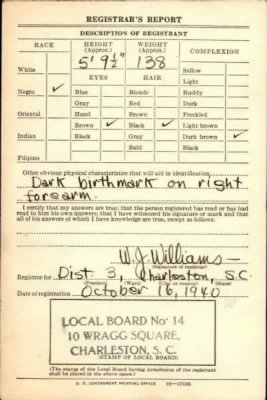 REGISTRAR'S REPORT
DESCRIPTION OF REGISTRANT
RACE HEIGHT (Approx.) WEIGHT (Approx.) COMPLEXION
5' 9½" 138
White Sallow
EYES HAIR Light
Negro ✓ Blue Blonde Ruddy
Gray Red Dark
Oriental Hazel Brown Freckled
Brown ✓ Black ✓ Light brown
Indian Black Gray Dark brown ✓
Bald Black
Filipino
Other obvious physical characteristics that will aid in identification
Dark birthmark on right
forearm.
I certify that my answers are true; that the person registered has read or has had
read to him his own answers; that I have witnessed his signature or mark and that
all of his answers of which I have knowledge are true, except as follows:
W. J. Williams
(Signature of registrar)
Registrar for Dist 3, Charleston, S.C.
(Precinct) (City or county) (State)
Date of registration October 16, 1940
LOCAL BOARD No 14
10 WRAGG SQUARE,
CHARLESTON, S. C.
(STAMP OF LOCAL BOARD)
(The stamp of the Local Board having jurisdiction of the registrant
shall be placed in the above space.)
U. S. GOVERNMENT PRINTING OFFICE